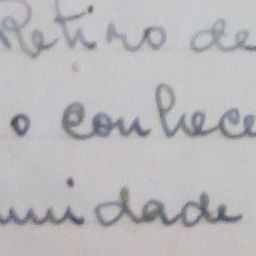 Retiro de
o conhece
unidade